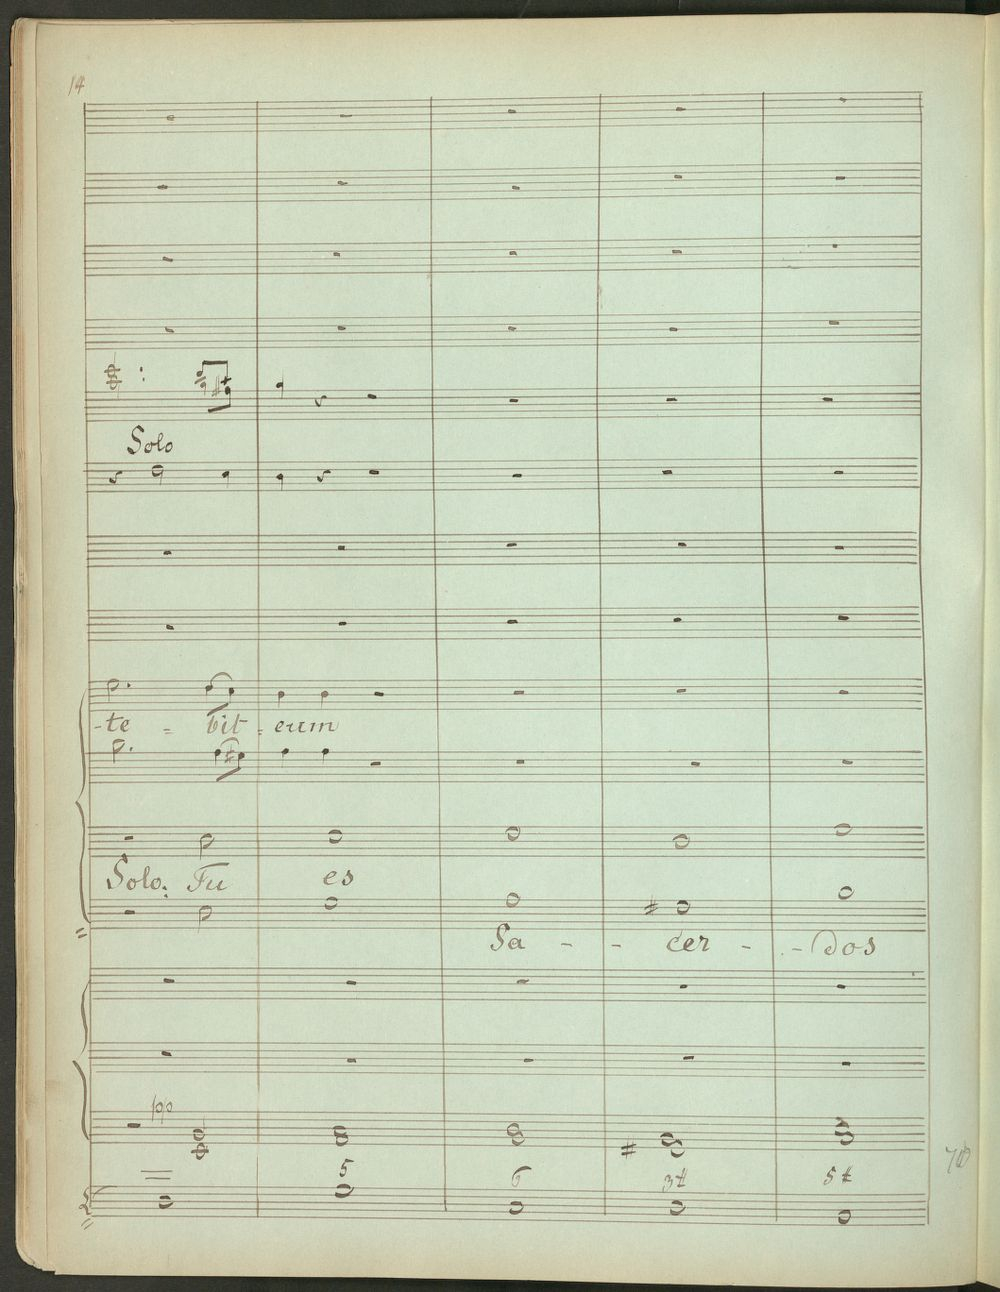 14
Solo
-te = bit = eum
Solo: Tu es
Sa - - cer - - dos
pp
5 6 3# 5#